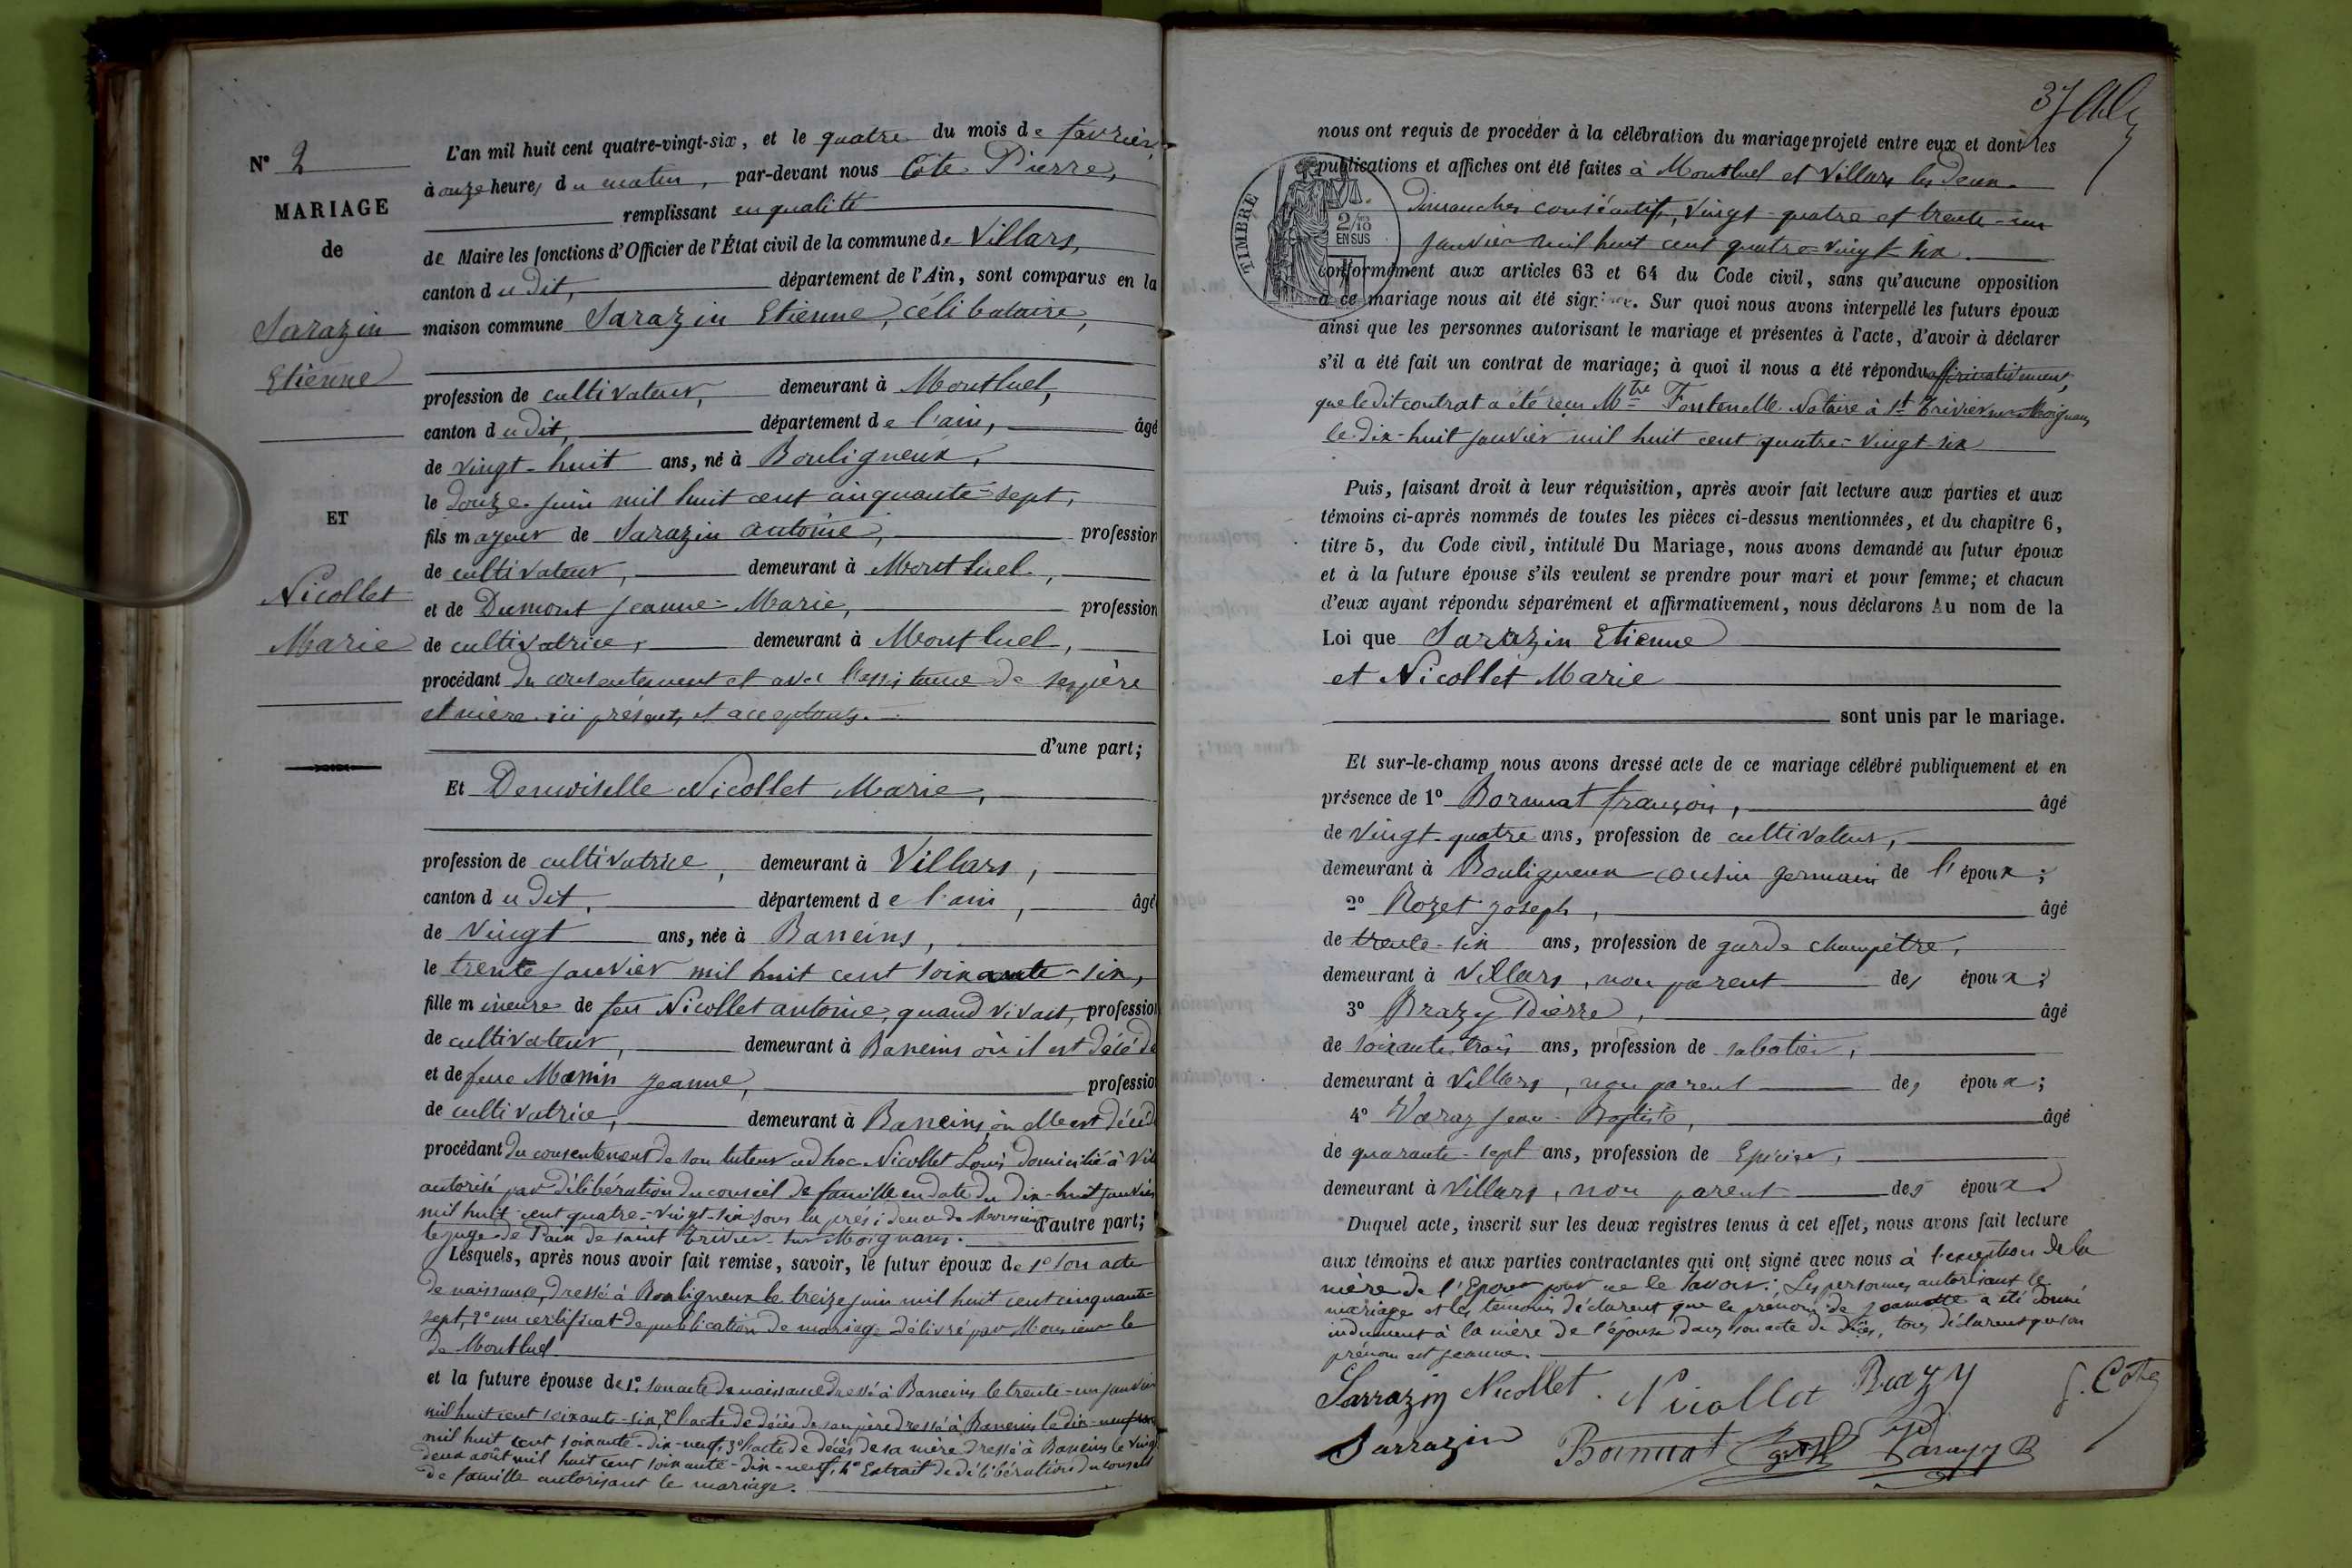 N° 2
MARIAGE
de
Sarazin
Etienne
ET
Nicollet
Marie
L'an mil huit cent quatre-vingt-six, et le quatre du mois de février,
à onze heures du matin, par-devant nous Côte Pierre,
remplissant en qualité
de Maire les fonctions d'Officier de l'État civil de la commune de Villars,
canton dudit, département de l'Ain, sont comparus en la
maison commune Sarazin Etienne, célibataire,
profession de cultivateur, demeurant à Montluel,
canton dudit, département de l'ain, âgé
de vingt-huit ans, né à Bouligneux,
le douze juin mil huit cent cinquante-sept,
fils majeur de Sarazin antoine, profession
de cultivateur, demeurant à Montluel,
et de Dumont Jeanne-Marie, profession
de cultivatrice, demeurant à Montluel,
procédant du consentement et avec l'assistance de ses père
et mère ici présents et acceptants.
d'une part;
Et Demoiselle Nicollet Marie,
profession de cultivatrice, demeurant à Villars,
canton dudit, département de l'ain, âgé
de vingt ans, née à Baneins,
le trente janvier mil huit cent soixante-six,
fille mineure de feu Nicollet antoine, quand vivait, profession
de cultivateur, demeurant à Baneins où il est décédé
et de feue Manin Jeanne, profession
de cultivatrice, demeurant à Baneins, où elle est décédé
procédant du consentement de son tuteur ad hoc Nicollet Louis domicilié à Vill
autorisé par délibération du conseil de famille en date du dix-huit janvier
mil huit cent quatre-vingt-six sous la présidence de Monsieur d'autre part;
le juge de Paix de saint Trivier-sur-Moignans.
Lesquels, après nous avoir fait remise, savoir, le futur époux de 1° son acte
de naissance, dressé à Bouligneux le treize juin mil huit cent cinquante-
sept, 2° un certificat de publication de mariage délivré par Monsieur le
de Montluel
et la future épouse de 1° son acte de naissance dressé à Baneins le trente-un janvier
mil huit cent soixante-six, 2° l'acte de décès de son père dressé à Baneins le dix-neuf
mil huit cent soixante-dix-neuf, 3° l'acte de décès de sa mère dressé à Baneins le vingt
deux août mil huit cent soixante-dix-neuf, 4° Extrait de délibération du conseil
de famille autorisant le mariage.
37
nous ont requis de procéder à la célébration du mariage projeté entre eux et dont les
publications et affiches ont été faites à Montluel et Villars les deux
dimanches consécutifs, vingt-quatre et trente-un
janvier mil huit cent quatre-vingt-six.
TIMBRE
2/10
EN SUS
conformément aux articles 63 et 64 du Code civil, sans qu'aucune opposition
à ce mariage nous ait été signifiée. Sur quoi nous avons interpellé les futurs époux
ainsi que les personnes autorisant le mariage et présentes à l'acte, d'avoir à déclarer
s'il a été fait un contrat de mariage; à quoi il nous a été répondu affirmativement,
que ledit contrat a été reçu Mtre Fontenelle Notaire à St Trivier sur Moignans
le dix-huit janvier mil huit cent quatre-vingt-six
Puis, faisant droit à leur réquisition, après avoir fait lecture aux parties et aux
témoins ci-après nommés de toutes les pièces ci-dessus mentionnées, et du chapitre 6,
titre 5, du Code civil, intitulé Du Mariage, nous avons demandé au futur époux
et à la future épouse s'ils veulent se prendre pour mari et pour femme; et chacun
d'eux ayant répondu séparément et affirmativement, nous déclarons Au nom de la
Loi que Sarazin Etienne
et Nicollet Marie
sont unis par le mariage.
Et sur-le-champ nous avons dressé acte de ce mariage célébré publiquement et en
présence de 1° Bornnat françois, âgé
de vingt-quatre ans, profession de cultivateur,
demeurant à Bouligneux cousin germain de l'époux;
2° Rozet joseph, âgé
de trente-six ans, profession de garde champêtre,
demeurant à Villars, non parent des époux;
3° Brazy Pierre, âgé
de soixante-trois ans, profession de sabotier,
demeurant à Villars, non parent des époux;
4° Varay Jean-Baptiste, âgé
de quarante-sept ans, profession de Epicier,
demeurant à Villars, non parent des époux.
Duquel acte, inscrit sur les deux registres tenus à cet effet, nous avons fait lecture
aux témoins et aux parties contractantes qui ont signé avec nous à l'exception de la
mère de l'Epoux pour ne le savoir; Les personnes autorisant le
mariage et les témoins déclarent que le prénom de a été donné
indument à la mère de l'épouse dans son acte de décès, tous déclarent que son
prénom est jeanne.
Sarrazin Nicollet. Nicollet Brazy P. Côte
Sarrazin Bornnat